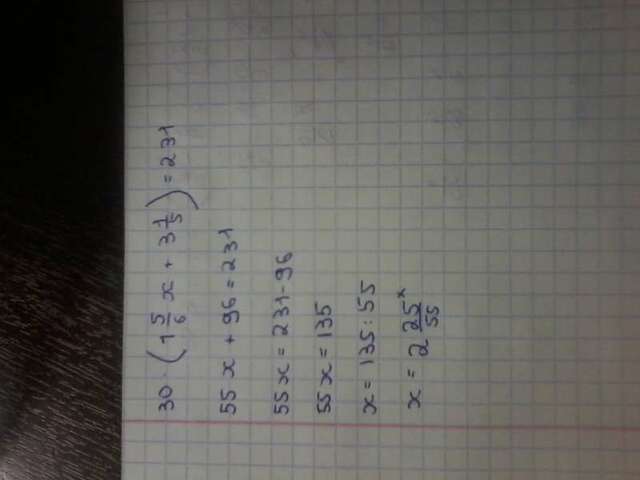 30 · (1 5/6 x + 3 1/5) = 231
55x + 96 = 231
55x = 231 - 96
55x = 135
x = 135 : 55
x = 2 25/55